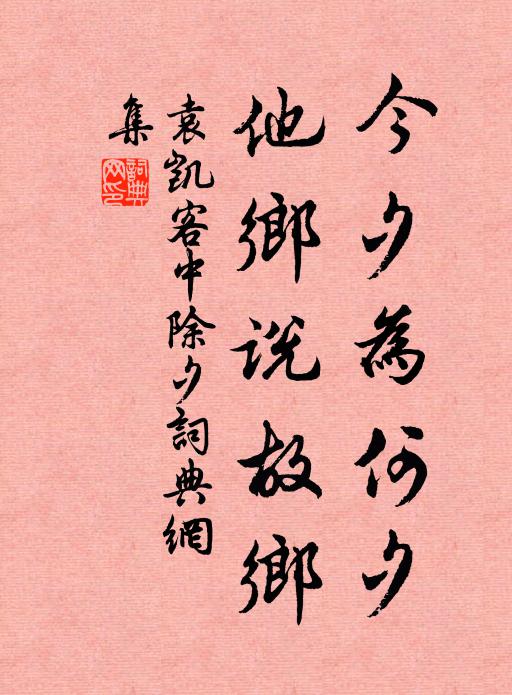 今夕為何夕
他鄉説故鄉
袁凱客中除夕詞典網
集
詞典網印